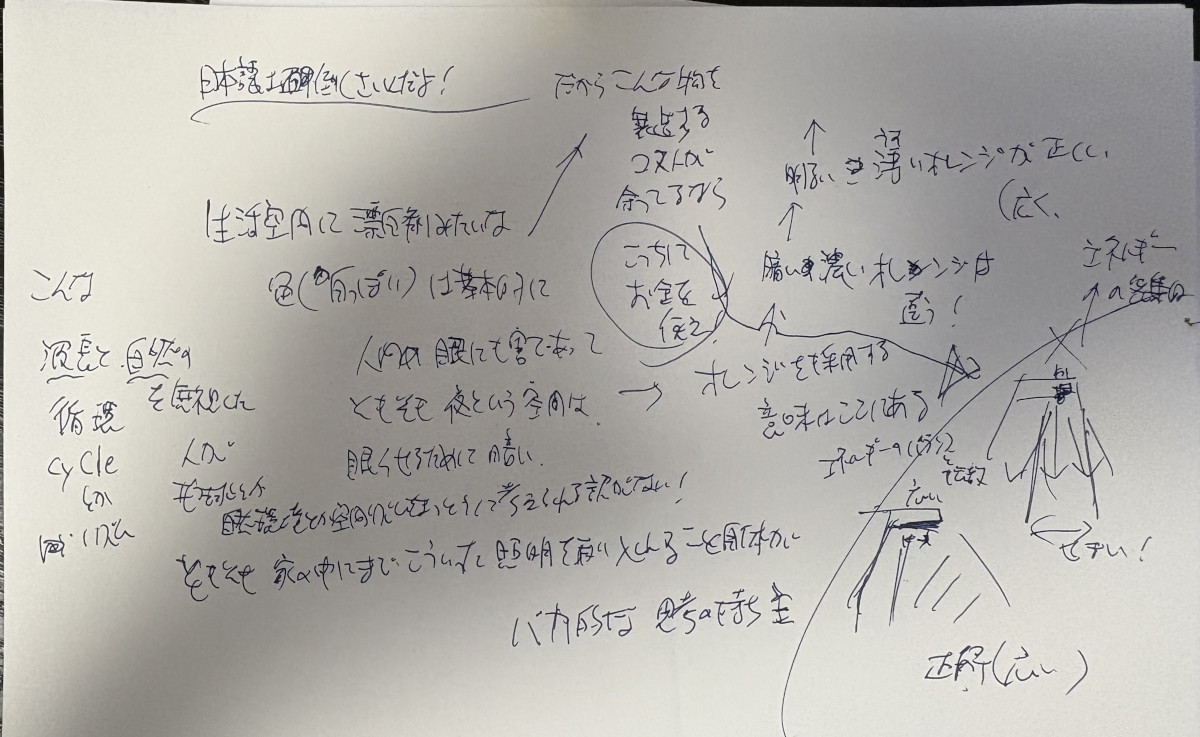 日本語は面倒くさいんだよ!
だからこんな物を
製造する
コストが
余ってるなら
こっちに
お金を
使え!
生活空間に漂白剤みたいな
色(白っぽい)は基本的に
人間の眼にも害であって
そもそも夜という空間は、
眠らせるために暗い
こんな
波長と自然の
循環を無視した
cycle 人が
とか
リズム
自然環境とか空間
考えられる訳がない!
そもそも家の中にまでこういった照明を取り入れること自体が
バカ的な思考の持ち主
明るい 薄いオレンジが正しい
うす
(広く、
暗い 濃いオレンジは
違う!
→ オレンジを採用する
意味はここにある
エネルギー
の密集は
広い
せまい!
正解(広い)